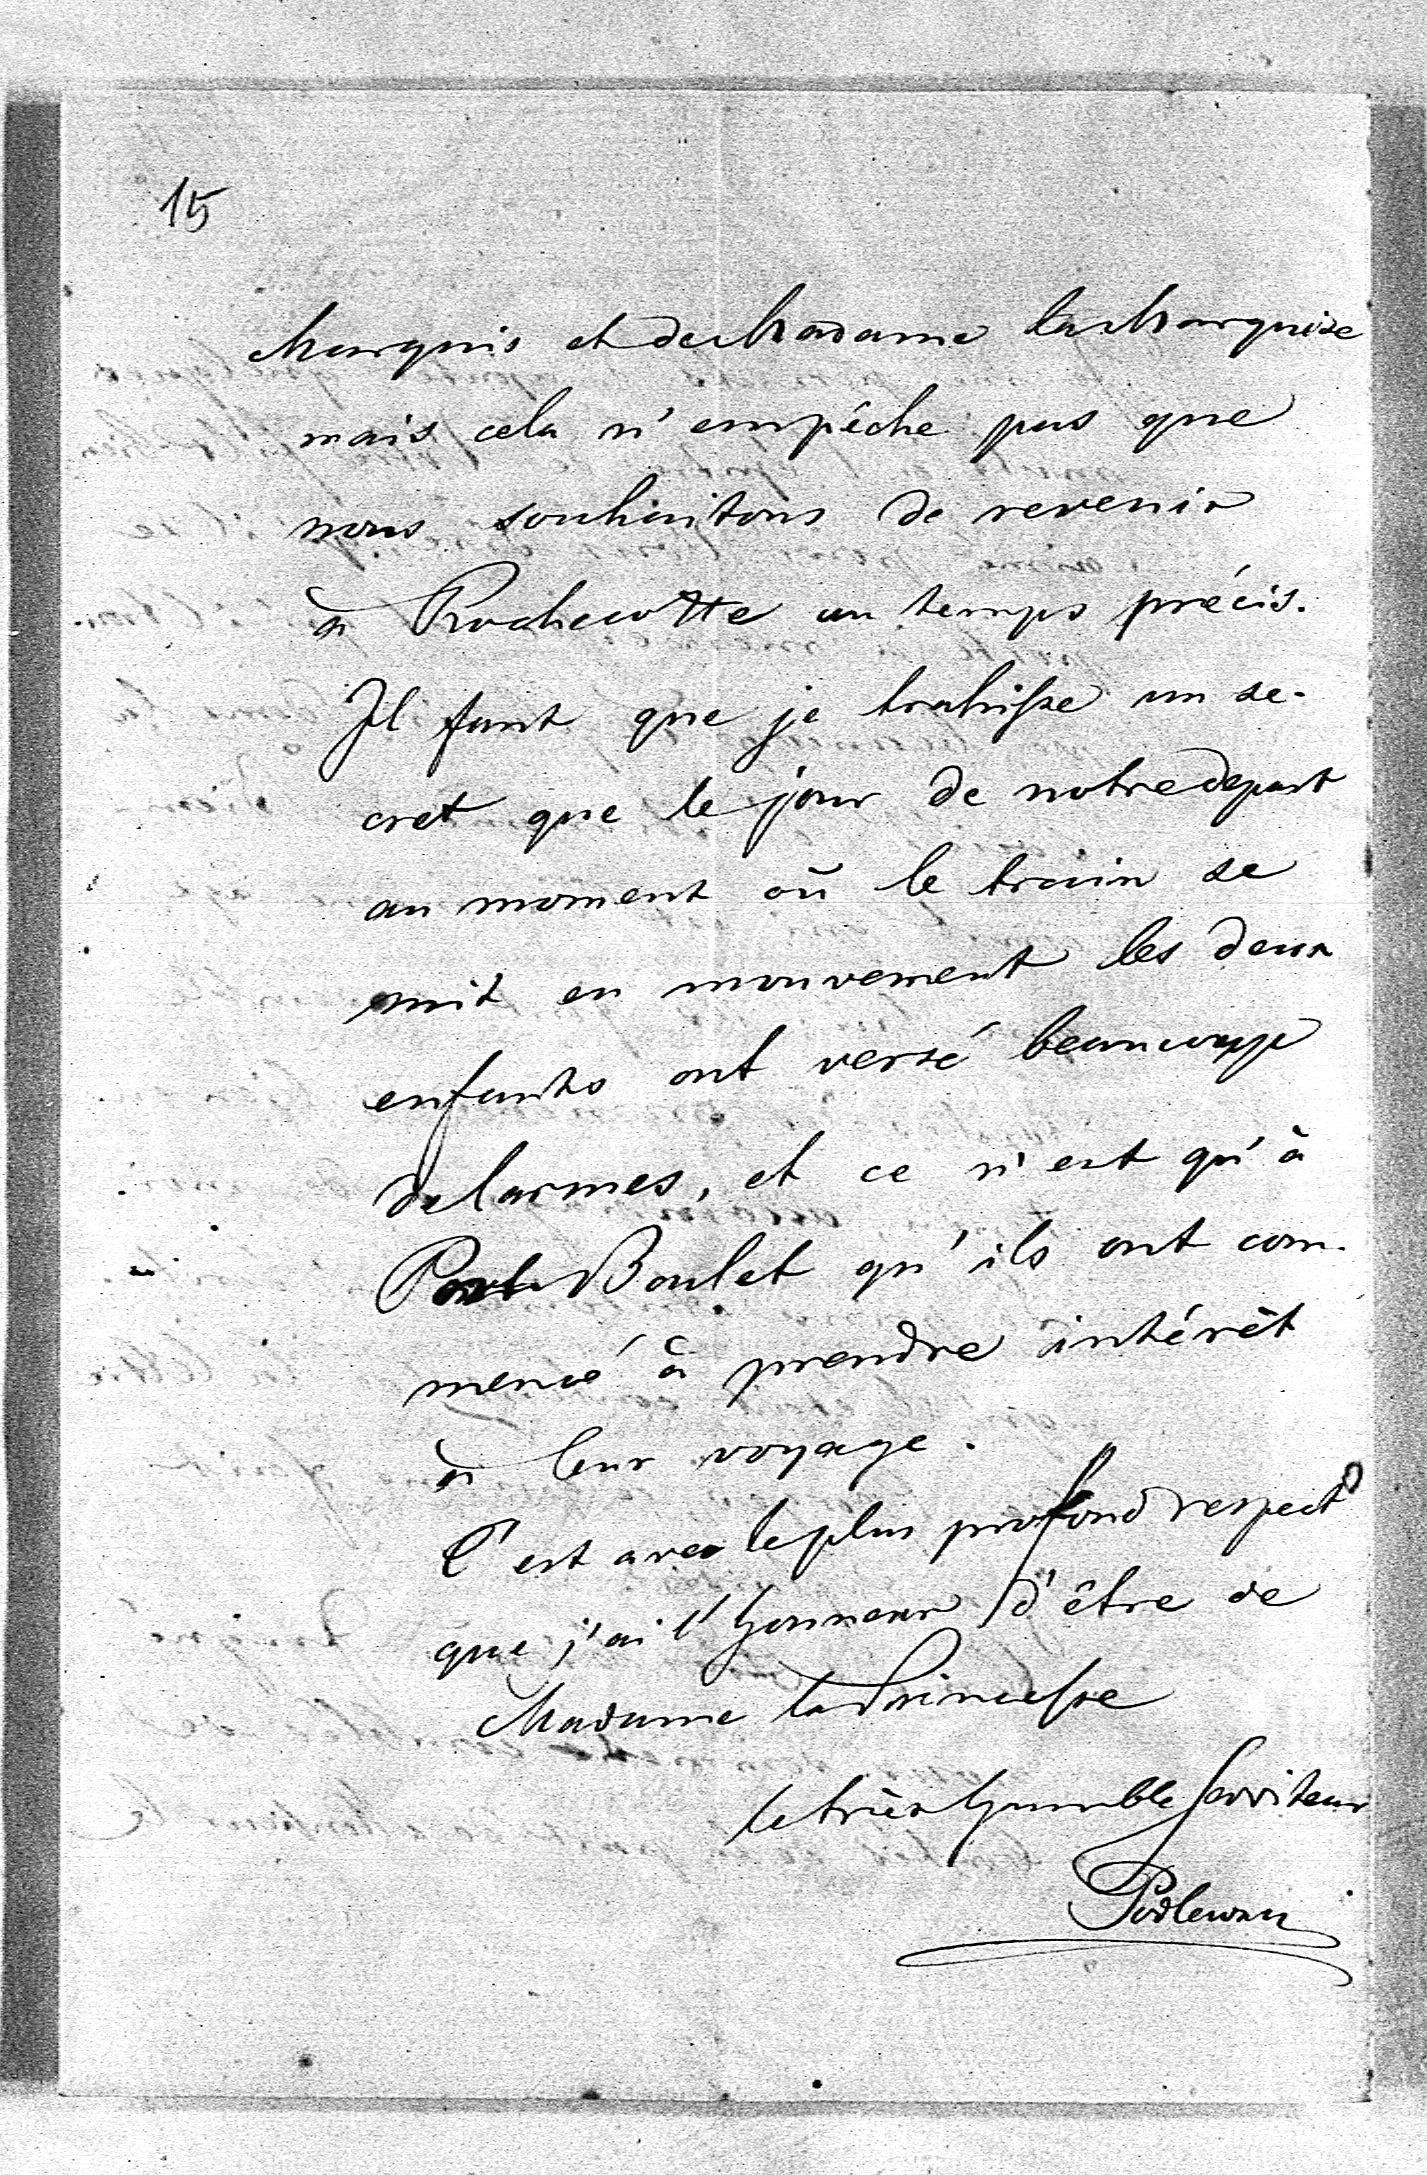 15
Marquis et de Madame la Marquise
mais cela n'empêche pas que
nous souhaitons de revenir
à Rochecotte au temps précis.
Il faut que je trahisse un se-
cret que le jour de notre depart
au moment où le train se
mit en mouvement les deux
enfants ont versé beaucoup
de larmes, et ce n'est qu'à
Port Boulet qu'ils ont com-
mencé à prendre intérêt
à leur voyage.
C'est avec le plus profond respect
que j'ai l'honneur d'être de
Madame la Princesse
le très humble serviteur
Podlewski